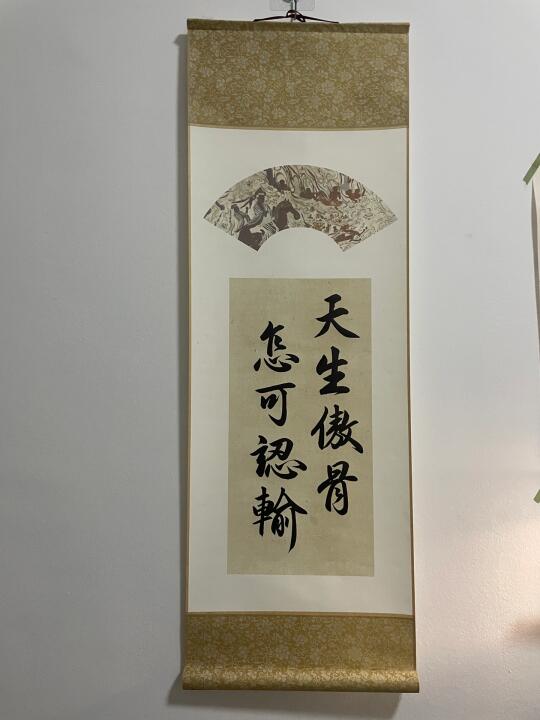 天生傲骨
怎可認輸